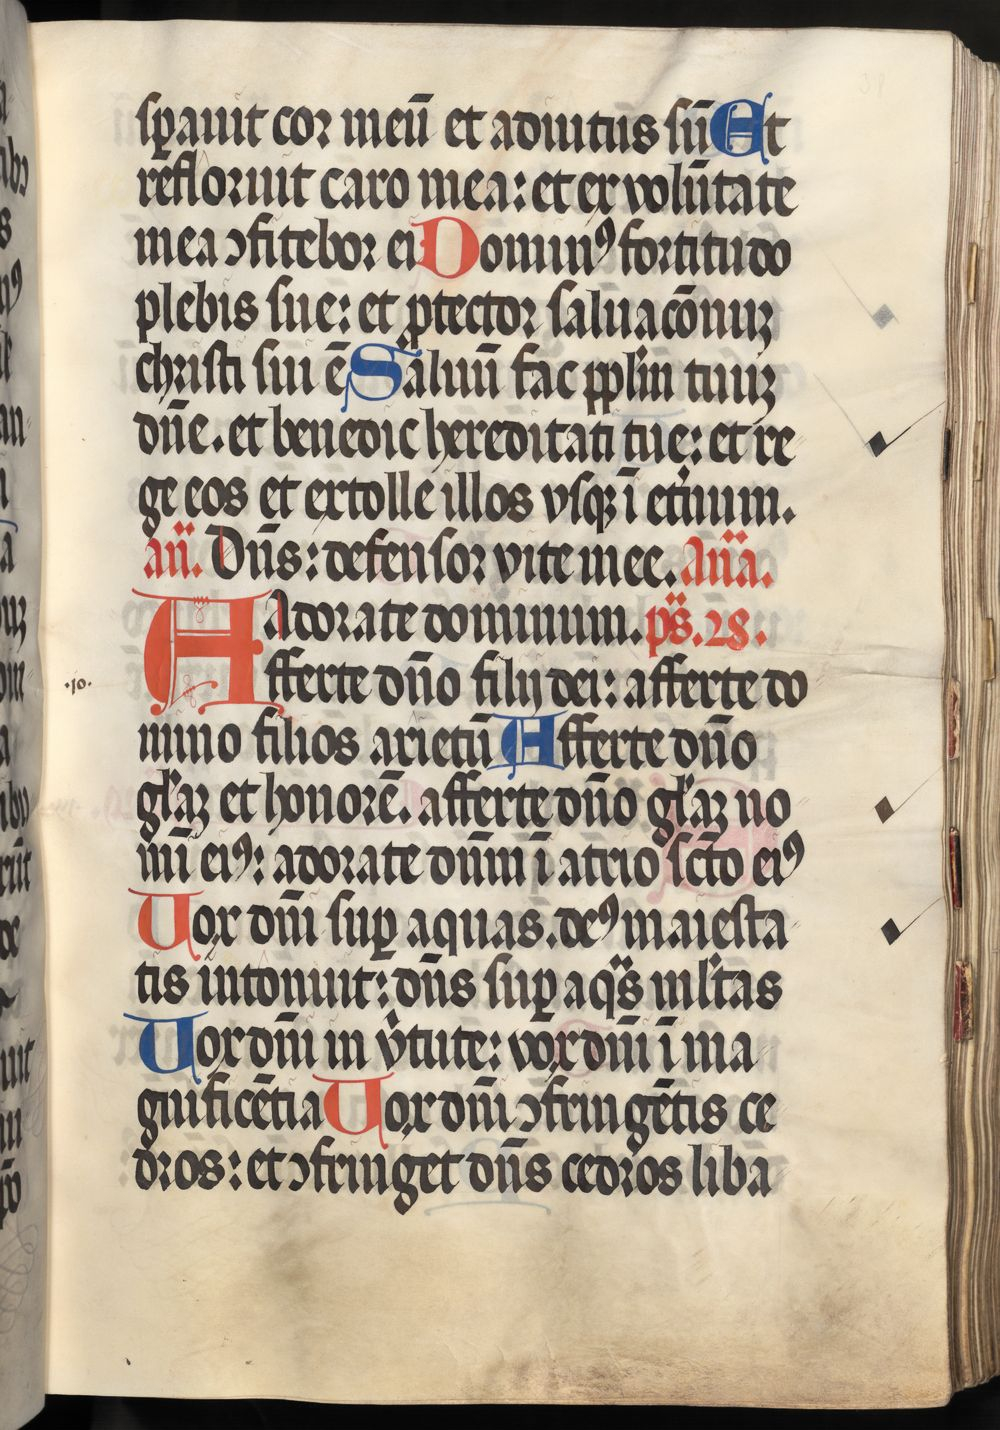 sꝑauit cor meū et adiutus sū Et
refloruit caro mea: et ex volūtate
mea ↄfitebor ei Dominꝰ fortitudo
plebis sue: et ꝓtector saluacōnuꝫ
christi sui ē Saluū fac ppl'm tuuꝫ
dn̄e. et benedic hereditati tue: et re
ge eos et extolle illos vsqꝫ ī et'num.
an̄. Dn̄s: defensor vite mee. Ana.
Adorate dominum. ps. 28.
Afferte dn̄o filij dei: afferte do
.10.
mino filios arietū Afferte dn̄o
gl'aꝫ et honorē. afferte dn̄o gl'aꝫ no
mī eiꝰ: adorate dn̄m ī atrio sc̄to eiꝰ
Uox dn̄i suꝑ aquas. deꝰ maiesta
tis intonuit: dn̄s suꝑ aqs ml'tas
Uox dn̄i in v'tute: vox dn̄i ī ma
gnificētia Uox dn̄i ↄfringētis ce
dros: et ↄfringet dn̄s cedros liba